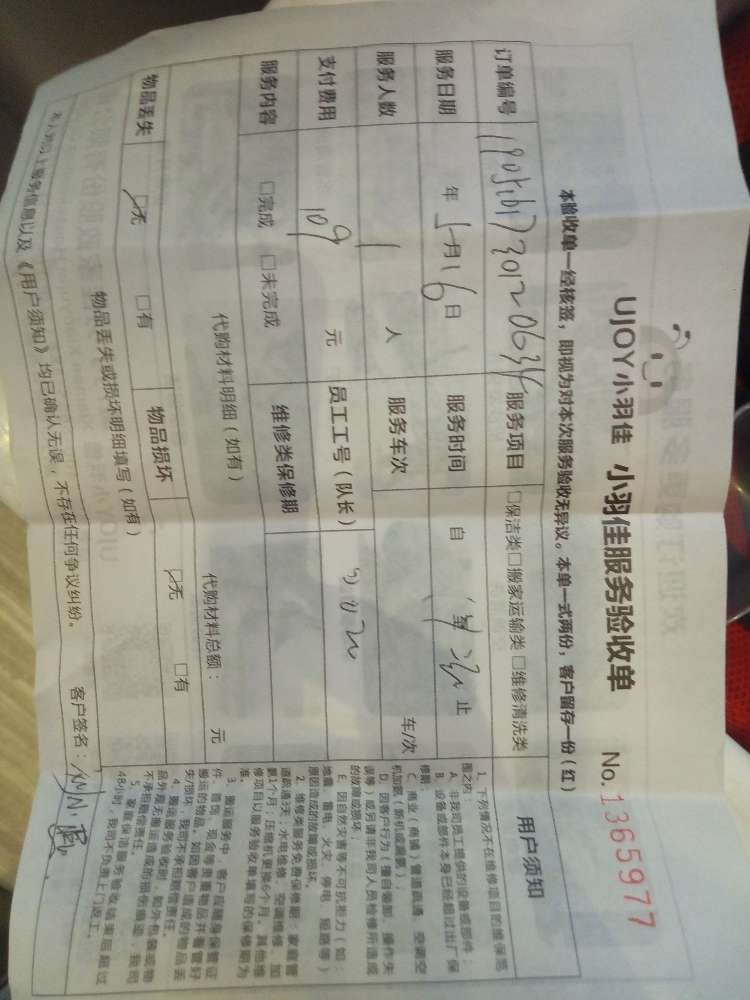 UJOY小羽佳 小羽佳服务验收单 No.1365977
本验收单一经核签，即视为对本次服务验收无异议。本单一式两份，客户留存一份（红）
订单编号 服务项目 □保洁类□搬家运输类□维修清洗类
服务日期 年 5月16日 服务时间 自 止
服务人数 1 人 服务车次 车/次
支付费用 109 元 员工工号（队长）
服务内容 □完成 □未完成 维修类保修期
代购材料明细（如有） 代购材料总额： 元
物品丢失 □无 □有 物品损坏 □无 □有
物品丢失或损坏明细填写（如有）
本人对以上服务信息以及《用户须知》均已确认无误，不存在任何争议纠纷。 客户签名：
用户须知
1、下列情况不在维修项目的维保范
围之内：
A、非我司员工提供的设备或部件；
B、设备或部件本身已经超过出厂保
修期；
C、商业（商铺）管道疏通、空调空
机加氟（新机或漏氟）；
D、因客户行为（擅自装卸、操作失
误等）或另请非我司人员检修所造成
的故障或损坏；
E、因自然灾害等不可抗拒力（如：
地震、雷电、火灾、停电、短路等）
原因造成的故障或损坏。
2、维修类服务免费保修期：家庭管
道疏通3天；水电维修、空调维修、加
氟1个月；压缩机更换6个月。其他维
修项目以服务验收单填写的保修期为
准。
3、搬运服务中，客户应随身保管证
件、首饰、现金等贵重物品并看管好
搬运的物品。如因客户造成的物品丢
失/损坏，我司不承担赔偿责任。
4、搬运服务验收时，如外包装或物
品外层无搬运造成的损伤痕迹，我司
不承担赔偿责任。
5、家庭保洁服务验收结束后超过
48小时，我司不负责上门返工。